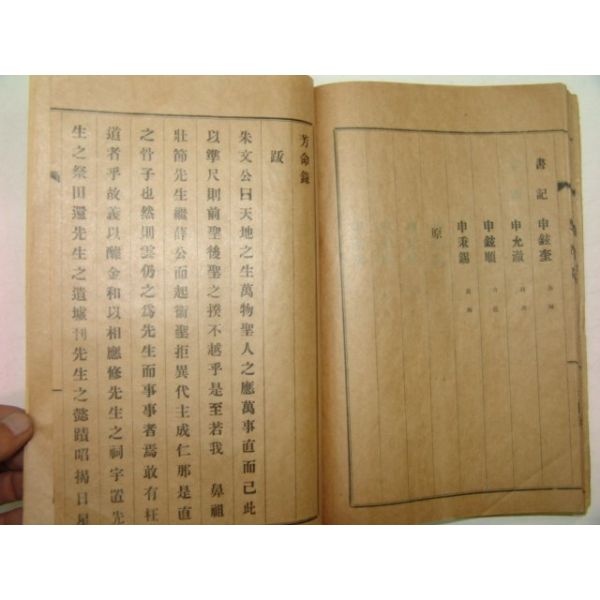 書記 申鉉奎
申允澈
申鉉順
申秉錫
原
芳命錄
跋
朱文公曰天地之生萬物聖人之應萬事直而已此
以準尺則前聖後聖之揆不越乎是至若我 鼻祖
壯節先生繼薛公而起衛聖拒異代主成仁那是直
之竹子也然則雲仍之爲先生而事事者焉敢有枉
道者乎故義以醵金和以相應修先生之祠宇置先
生之祭田還先生之遺墟刊先生之懿蹟昭揭日星